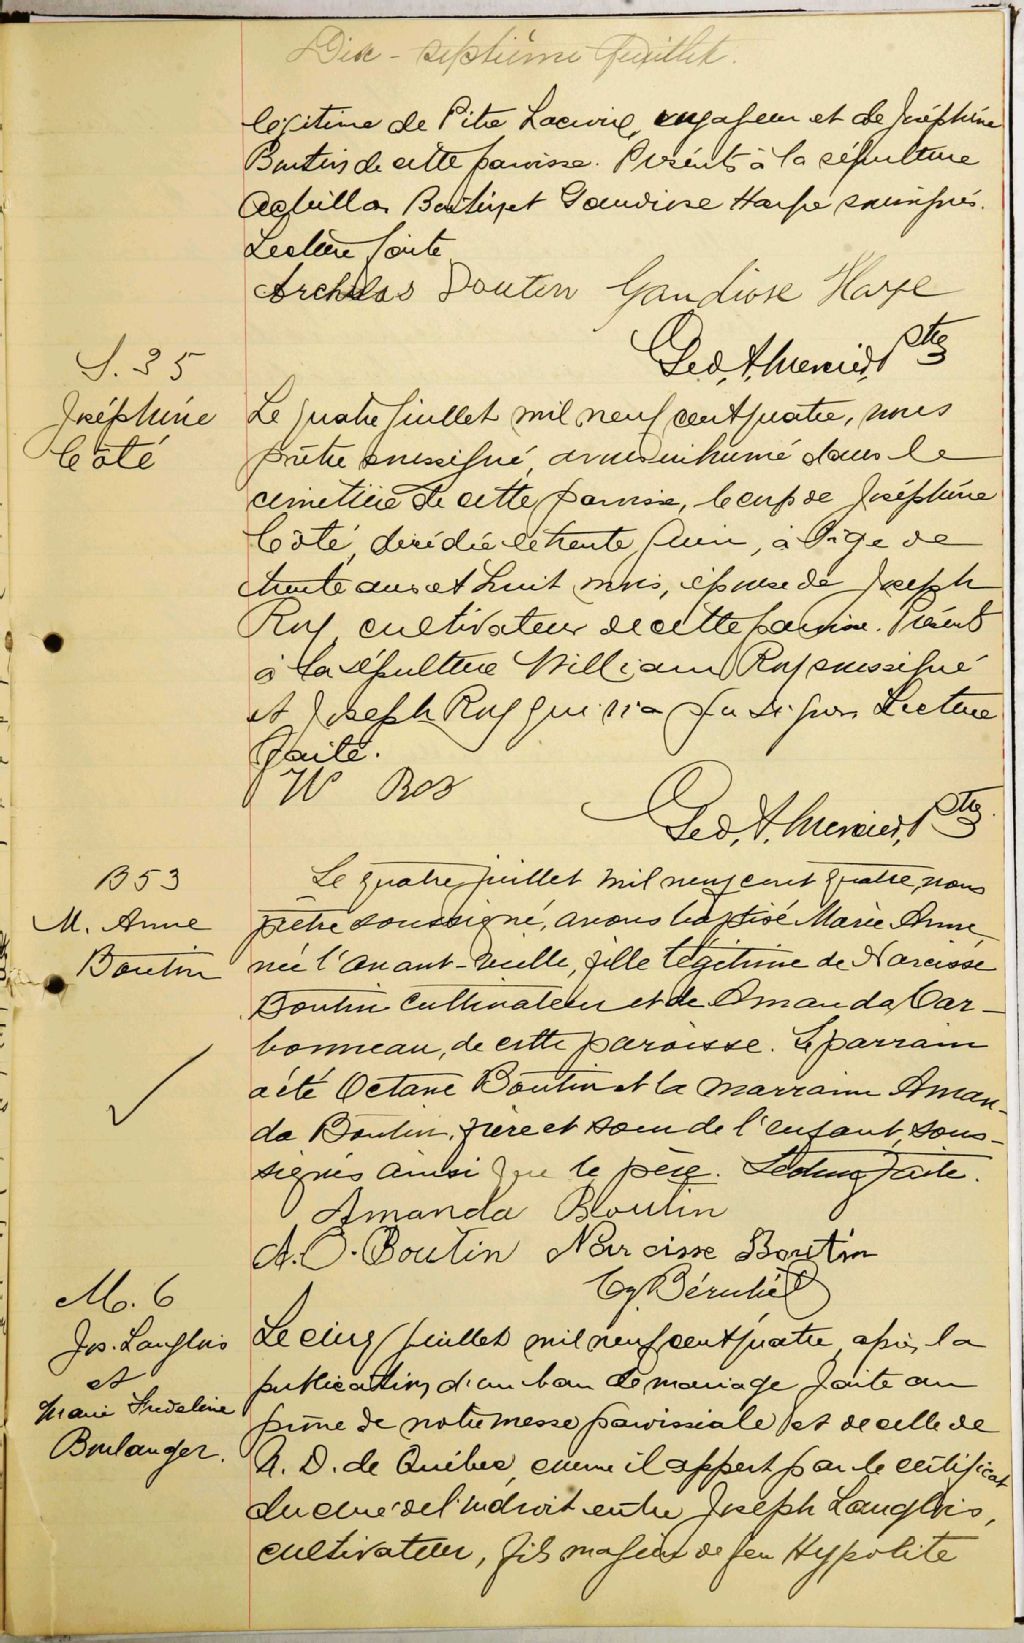 Dix-septième feuillet.
légitime de Pitre Lacroix, voyageur et de Joséphine
Boutin de cette paroisse. Présents à la sépulture
Achillas Boutin et Gaudiose Harpe soussignés.
Lecture faite
Archilas Boutin Gaudiose Harpe
Geo. A. Mercier, Ptre
S. 35
Joséphine
Côté
Le quatre juillet mil neuf cent quatre, nous
prêtre soussigné, avons inhumé dans le
cimetière de cette paroisse, le corps de Joséphine
Côté, décédée le trente juin, à l'âge de
trente ans et huit mois, épouse de Joseph
Roy, cultivateur de cette paroisse. Présents
à la sépulture William Roy soussigné
et Joseph Roy qui n'a pu signer. Lecture
faite.
W Roy
Geo. A. Mercier, Ptre
B 53
M. Anne
Boutin
Le quatre juillet mil neuf cent quatre, nous
prêtre soussigné, avons baptisé Marie Anne,
née l'avant-veille, fille légitime de Narcisse
Boutin cultivateur et de Amanda Car-
bonneau, de cette paroisse. Le parrain
a été Octave Boutin et la marraine Aman-
da Boutin, frère et soeur de l'enfant, sous-
signés ainsi que le père. Lecture faite.
Amanda Boutin
A. O. Boutin Narcisse Boutin
M. 6
Jos. Langlois
et
Marie
Boulanger.
Le cinq juillet mil neuf cent quatre, après la
publication d'un ban de mariage faite au
prône de notre messe paroissiale et de celle de
N. D. de Québec, comme il appert par le certificat
du curé de l'endroit entre Joseph Langlois,
cultivateur, fils majeur de feu Hypolite